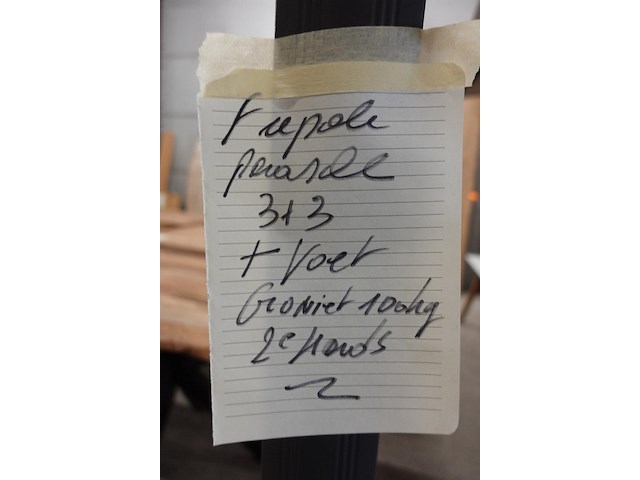 Frepole
parasol
3x3
+ Voet
Graniet 100kg
2e Hands